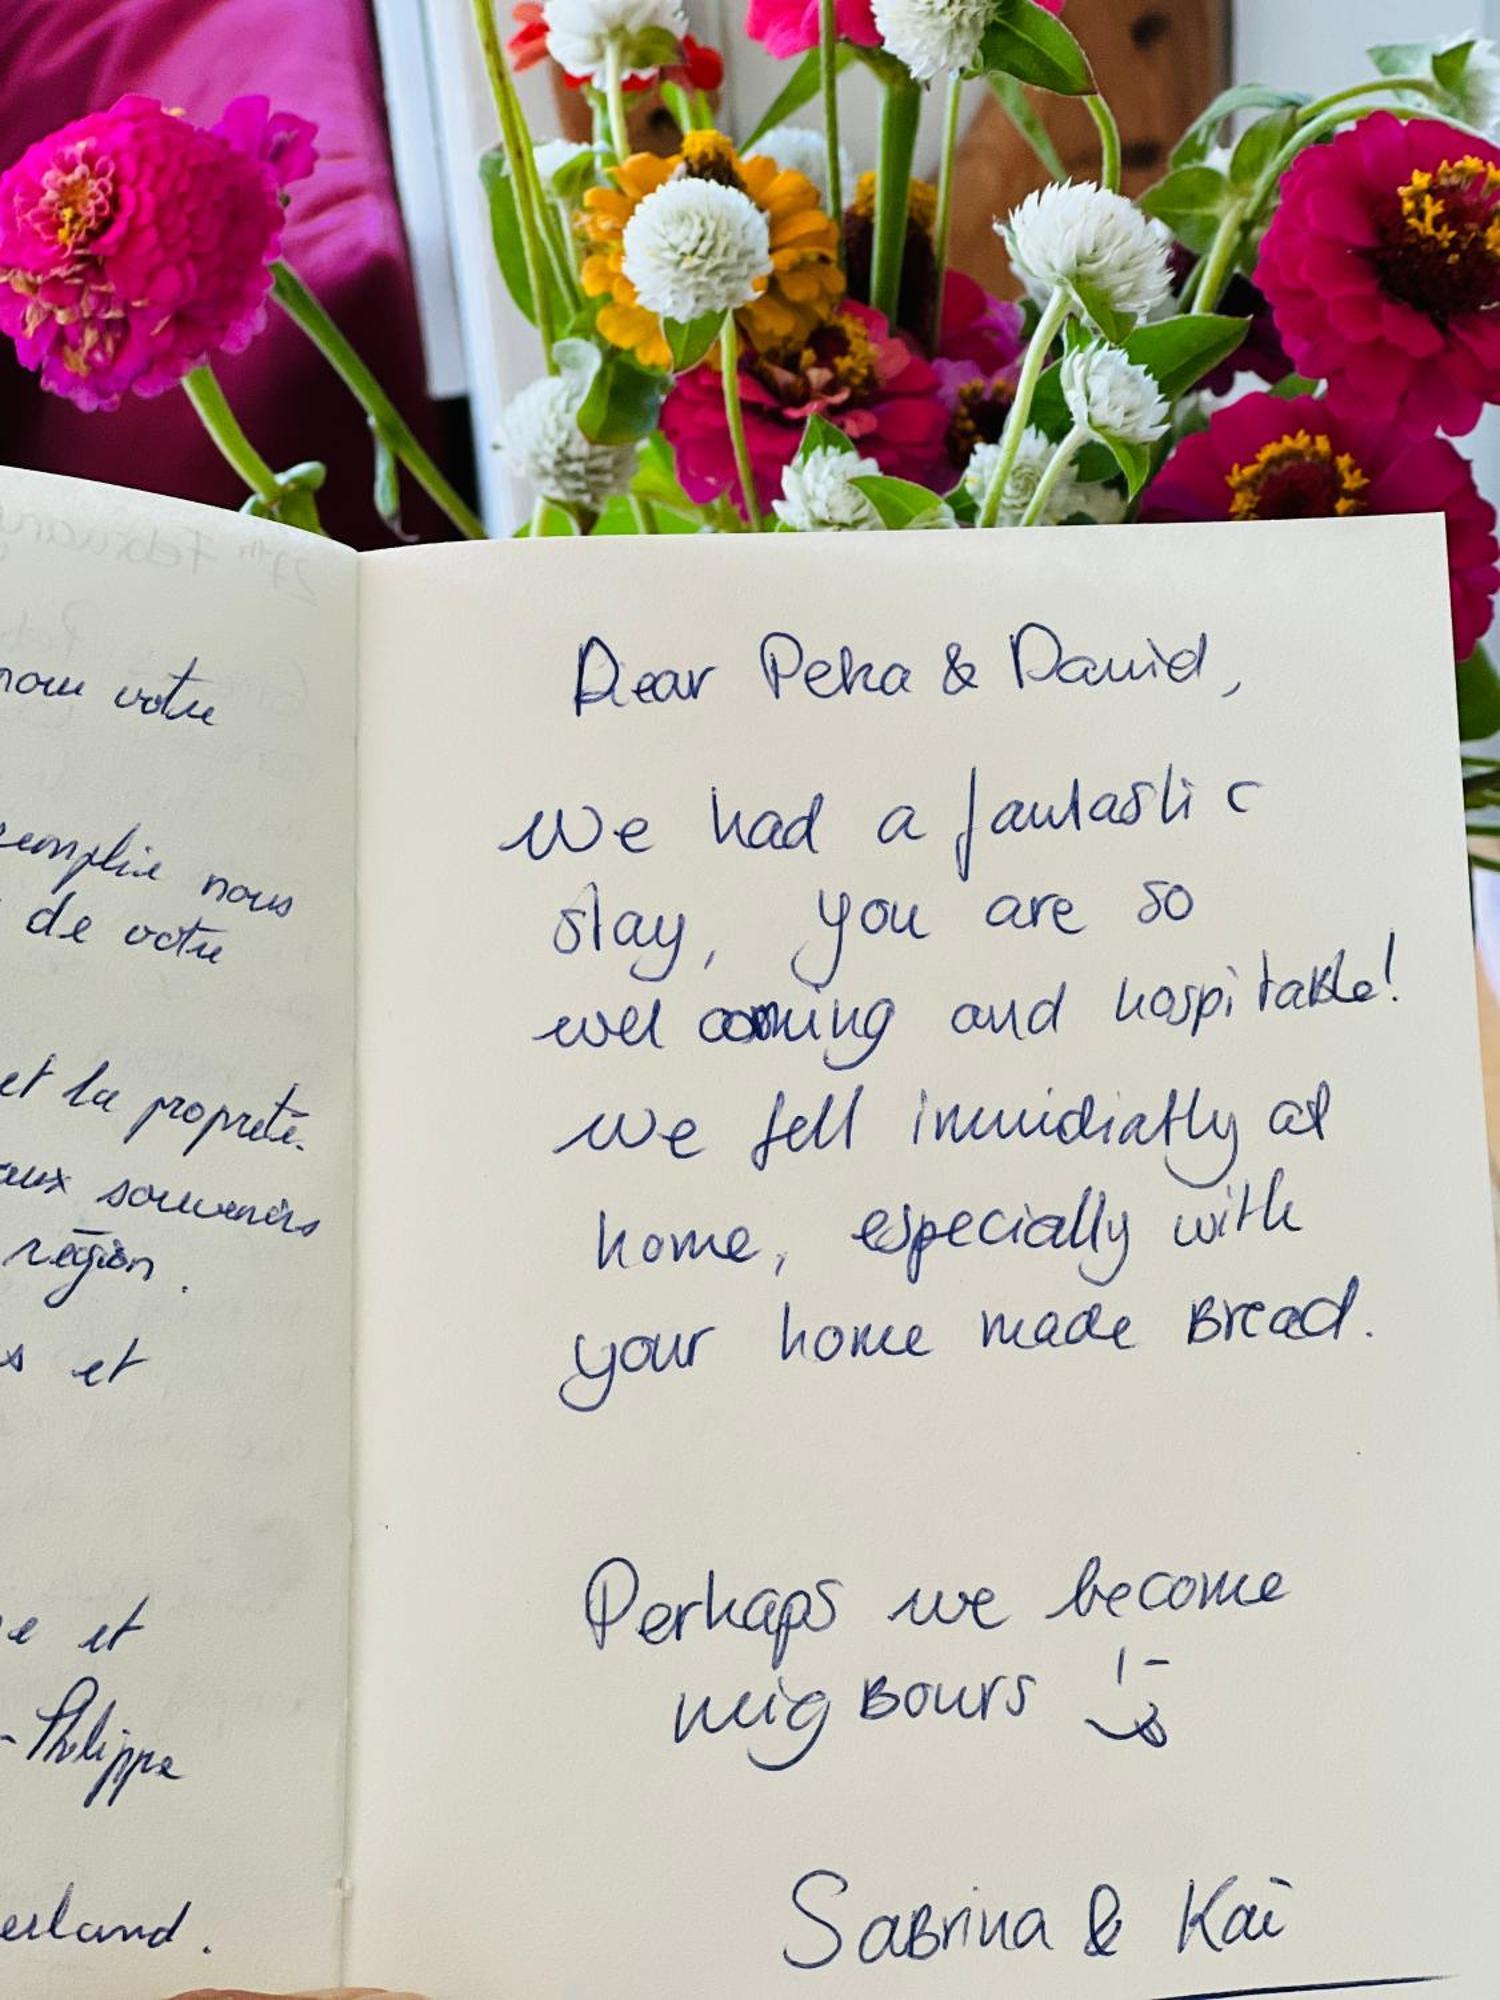 nous votre
remplie nous
de votre
et la propreté.
aux souvenirs
région.
s et
e et
-Philippe
erland.
Dear Peka & David,
We had a fantastic
stay, you are so
welcoming and hospitable!
We fell immidiatly at
home, especially with
your home made Bread.
Perhaps we become
neigbours ;-)
Sabrina & Kai